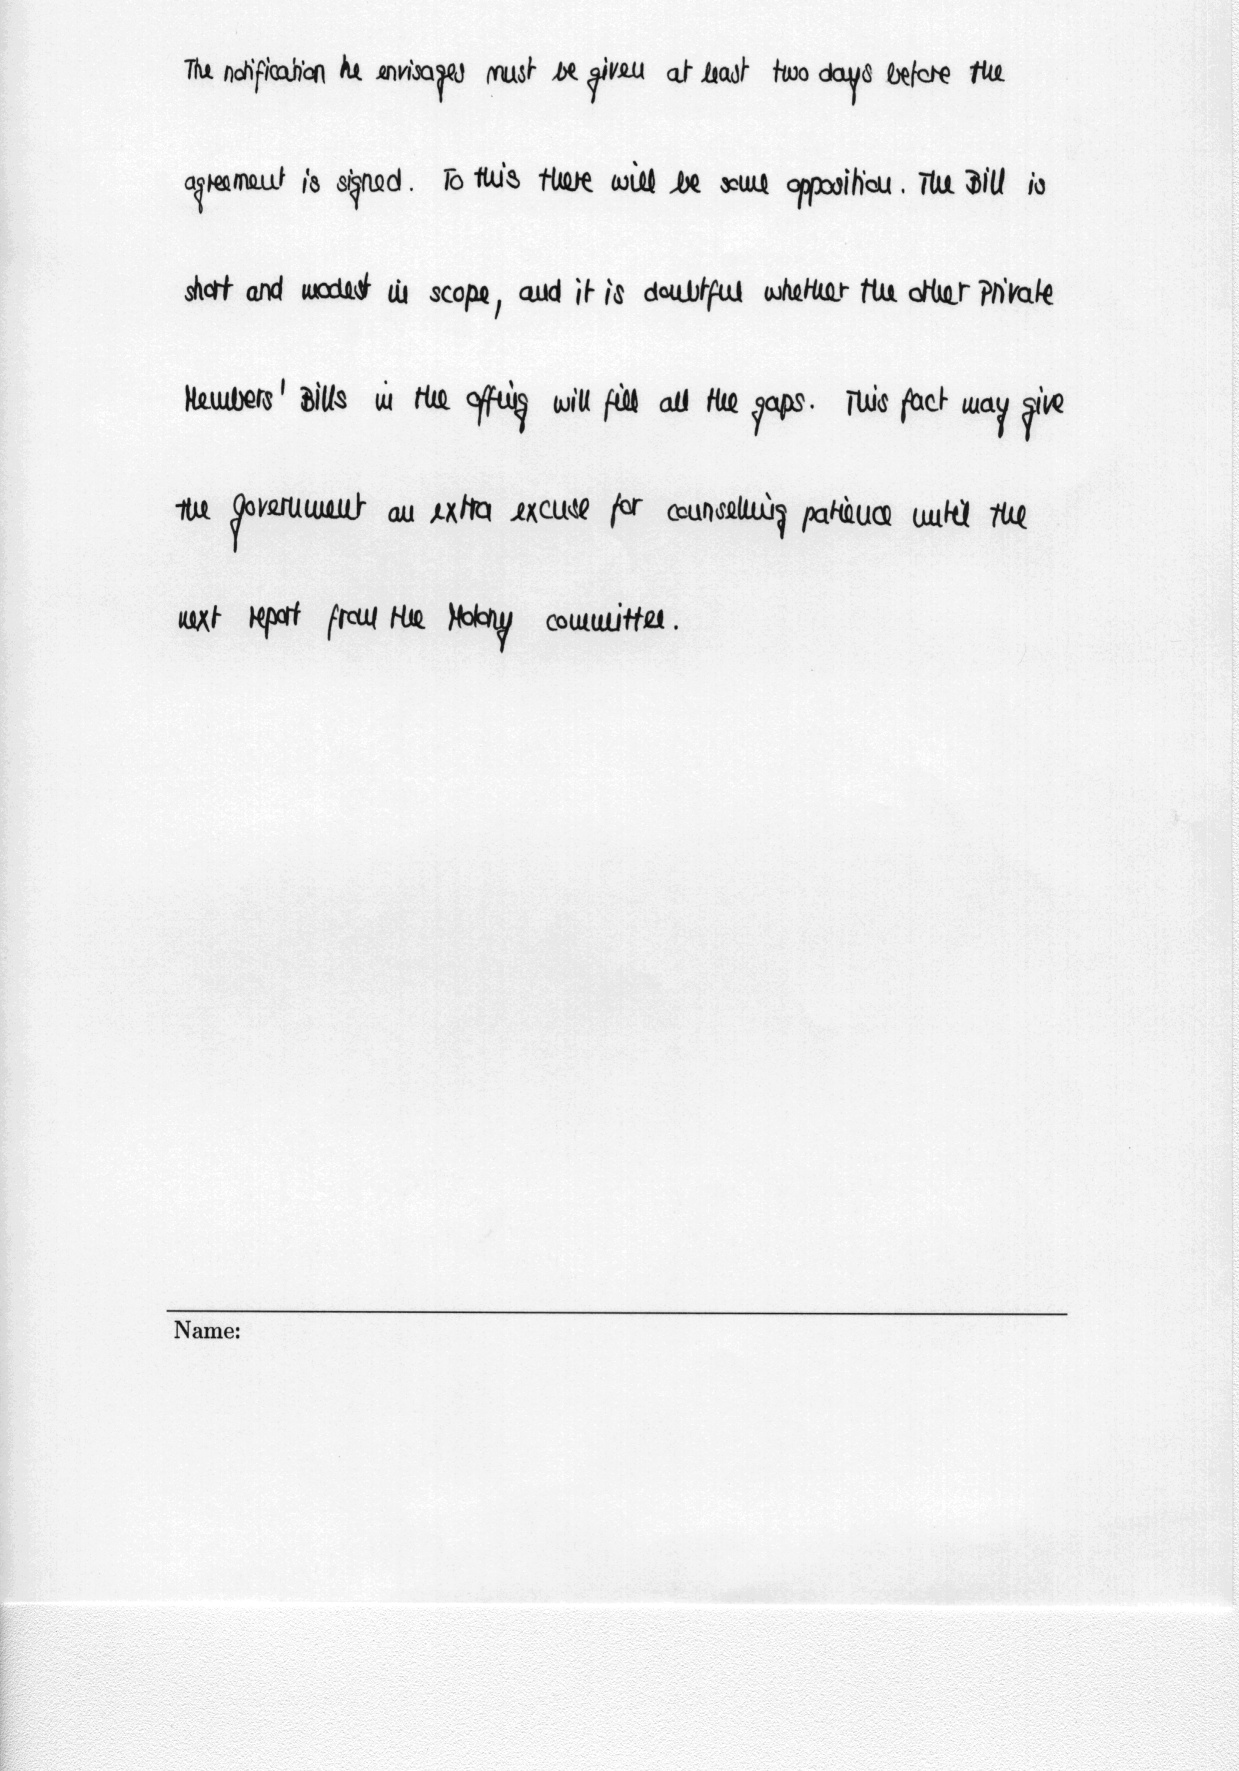 The notification he envisages must be given at least two days before the
agreement is signed. To this there will be some opposition. The Bill is
short and modest in scope, and it is doubtful whether the other Private
Members' Bills in the offing will fill all the gaps. This fact may give
the government an extra excuse for counselling patience until the
next report from the Molony committee.
Name: